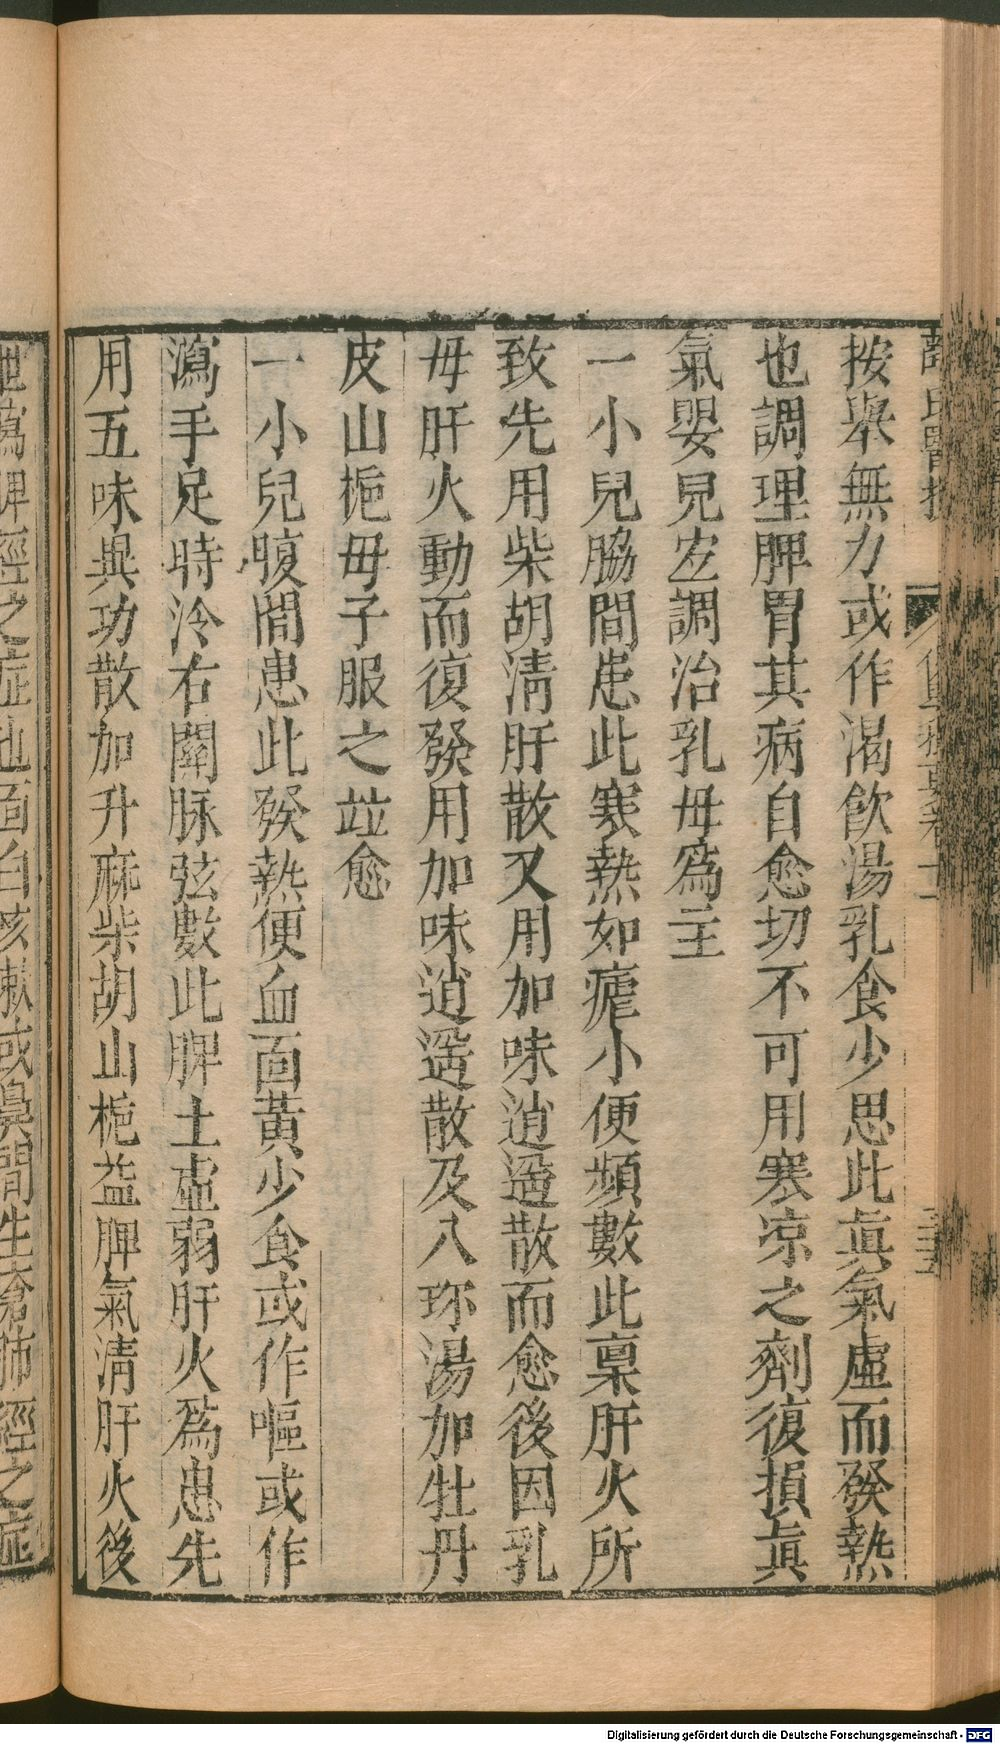 按舉無力或作渴飲湯乳食少思此眞氣虛而發熱
也調理脾胃其病自愈切不可用寒凉之劑復損眞
氣嬰兒宜調治乳母爲主
一小兒脇間患此寒熱如瘧小便頻數此稟肝火所
致先用柴胡淸肝散又用加味逍遥散而愈後因乳
母肝火動而復發用加味逍遥散及八珍湯加牡丹
皮山梔母子服之竝愈
一小兒腹間患此發熱便血面黃少食或作嘔或作
瀉手足時冷右關脉弦數此脾土虛弱肝火爲患先
用五味異功散加升麻柴胡山梔益脾氣淸肝火後
脾經之症也面白咳嗽或鼻間生瘡肺經之症
Digitalisierung gefördert durch die Deutsche Forschungsgemeinschaft - DFG